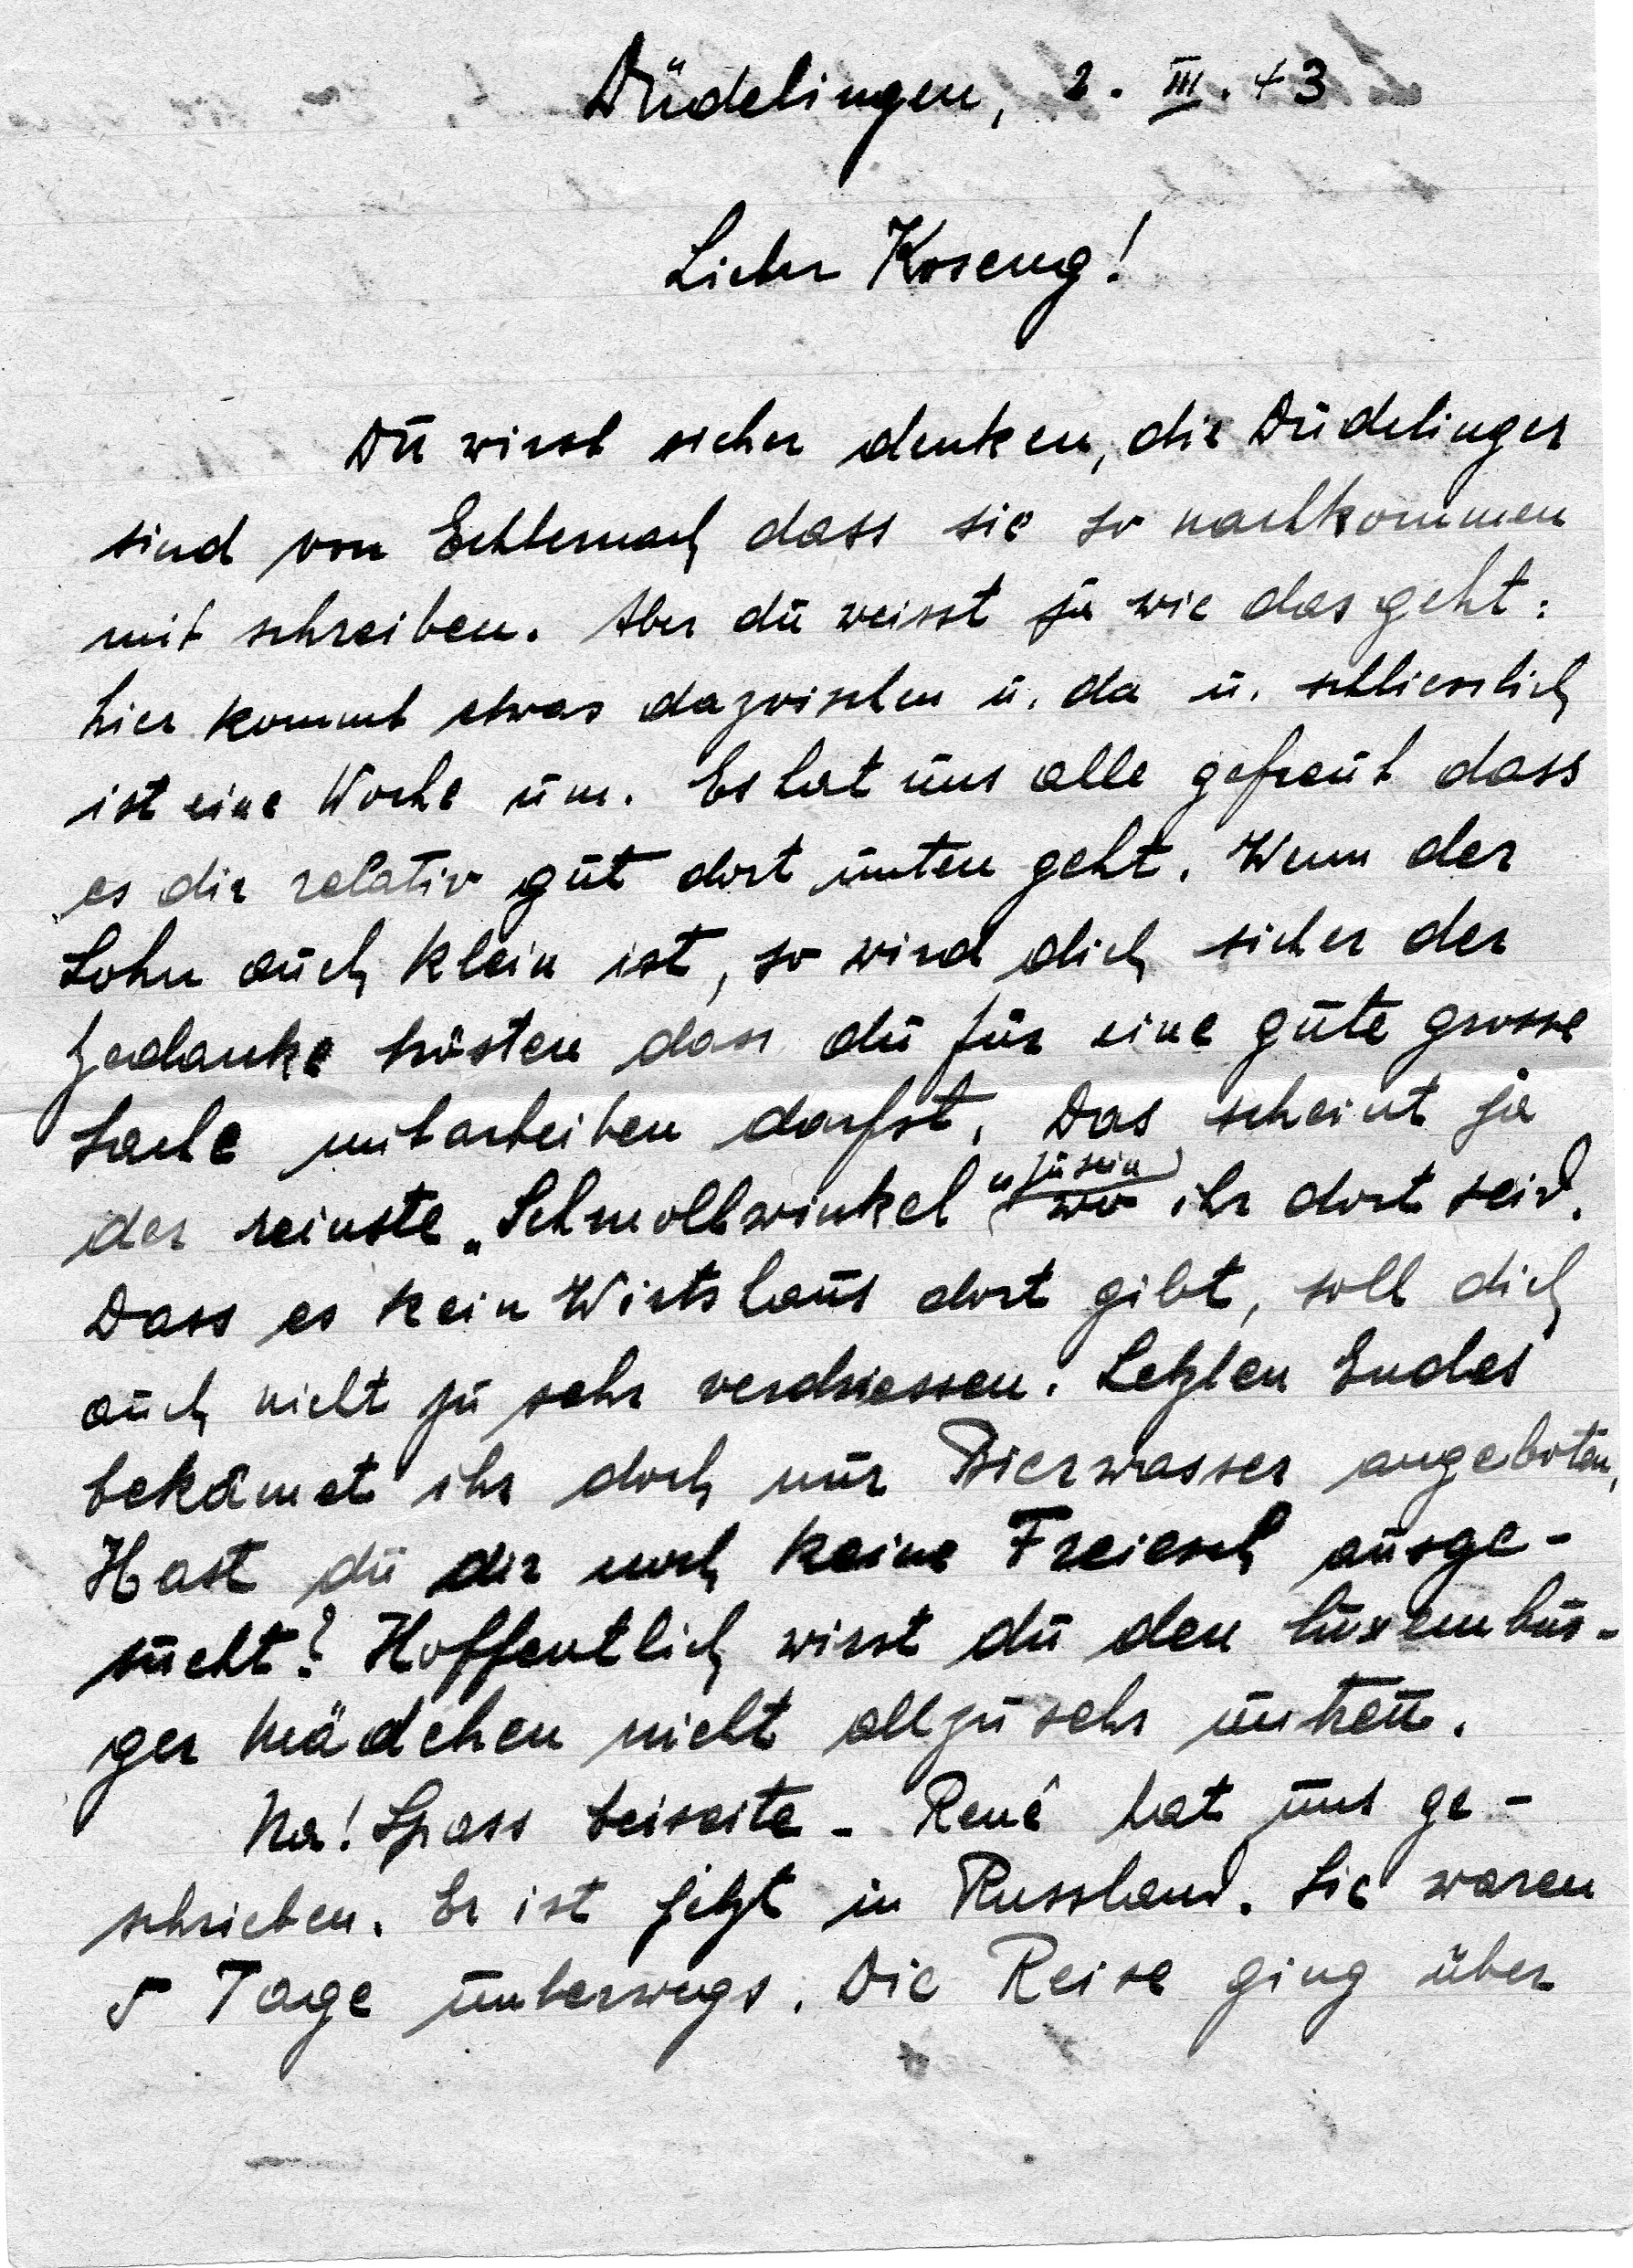 Düdelingen, 2. III. 43
Lieber Koseng!
Du wirst sicher denken, die Düdelinger
sind von Echternach dass sie so nachkommen
mit schreiben. Aber du weisst ja wie das geht:
hier kommt etwas dazwischen u. da u. schliesslich
ist eine Woche um. Es hat uns alle gefreut dass
es dir relativ gut dort unten geht. Wenn der
Lohn auch klein ist, so wird dich sicher der
Gedanke trösten dass du für eine gute grosse
Sache mitarbeiten darfst. Das scheint ja
der reinste „Schmollwinkel" zu sein wo ihr dort seid.
Dass es kein Wirtshaus dort gibt, soll dich
auch nicht zu sehr verdriessen. Letzten Endes
bekämet ihr doch nur Bierwasser angeboten,
Hast du dir noch keine Freiesch ausge-
sucht? Hoffentlich wirst du den luxembur-
ger Mädchen nicht allzusehr untreu.
Na! Spass beiseite - René hat uns ge-
schrieben. Er ist jetzt in Russland. Sie waren
5 Tage unterwegs. Die Reise ging über